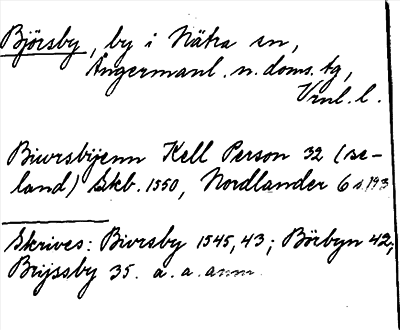 Björsby, by i Nätra sn,
Ångermanl. n. doms. tg,
Vnl. l.
Biursbijenn Kell Person 32 (se-
land) Skb. 1550, Nordlander 6 s. 193
Skrives: Biursby 1545, 43; Börbyn 42;
Brijssby 35. a. a. anm.